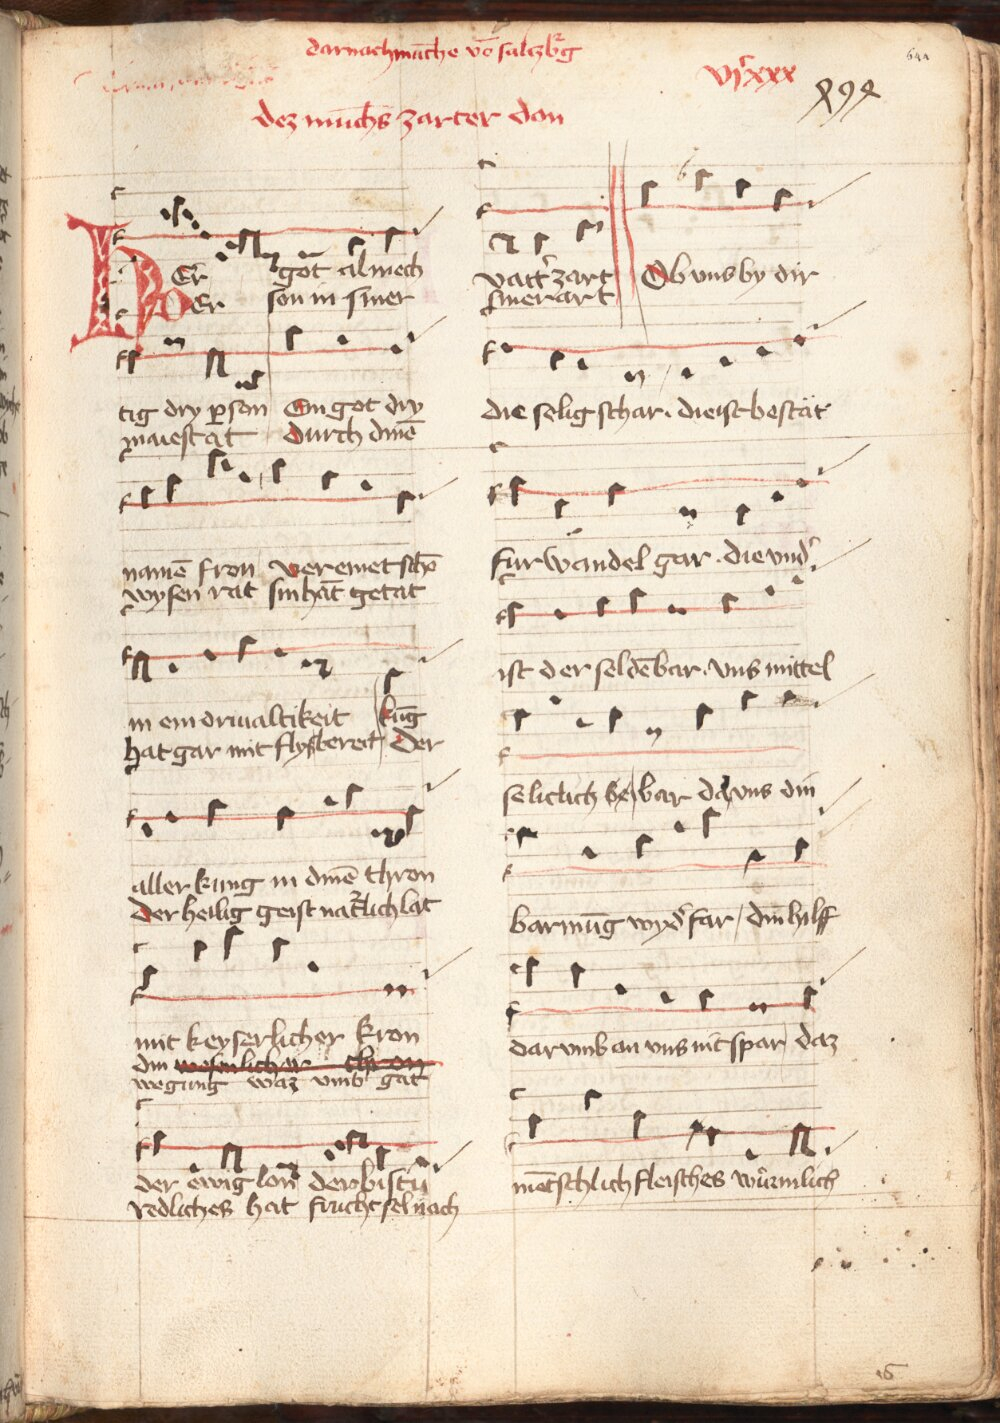 darnach münche vō saltzbg
vjᶜxxx
644
dez münchs zarter don
HEr got almech
Er son in siner
tig dry pson Ein got dry
maiestat durch dinē
namē fron vereinet schō
wysen rat sin hāt getat
in ein driualtikeit küg
hat gar mit flyß bereit Der
aller küng in dinē thron
der heilig geist natlich lat
mit keyserlicher kron
din
wegung waz vmb gat
der ewig lon der bistu
redliches hat frucht sel nach
vattˀ zart Ob vns by dir
siner art
die selig schar. die ist bestät
für wandel gar. die vndˀ
ist der seldēbar. vns mittel
seliclich bar da vns din
barmüg wydˀ far / din hilff
dar vmb an vns nit spar daz
mētschlich fleisches würmlich